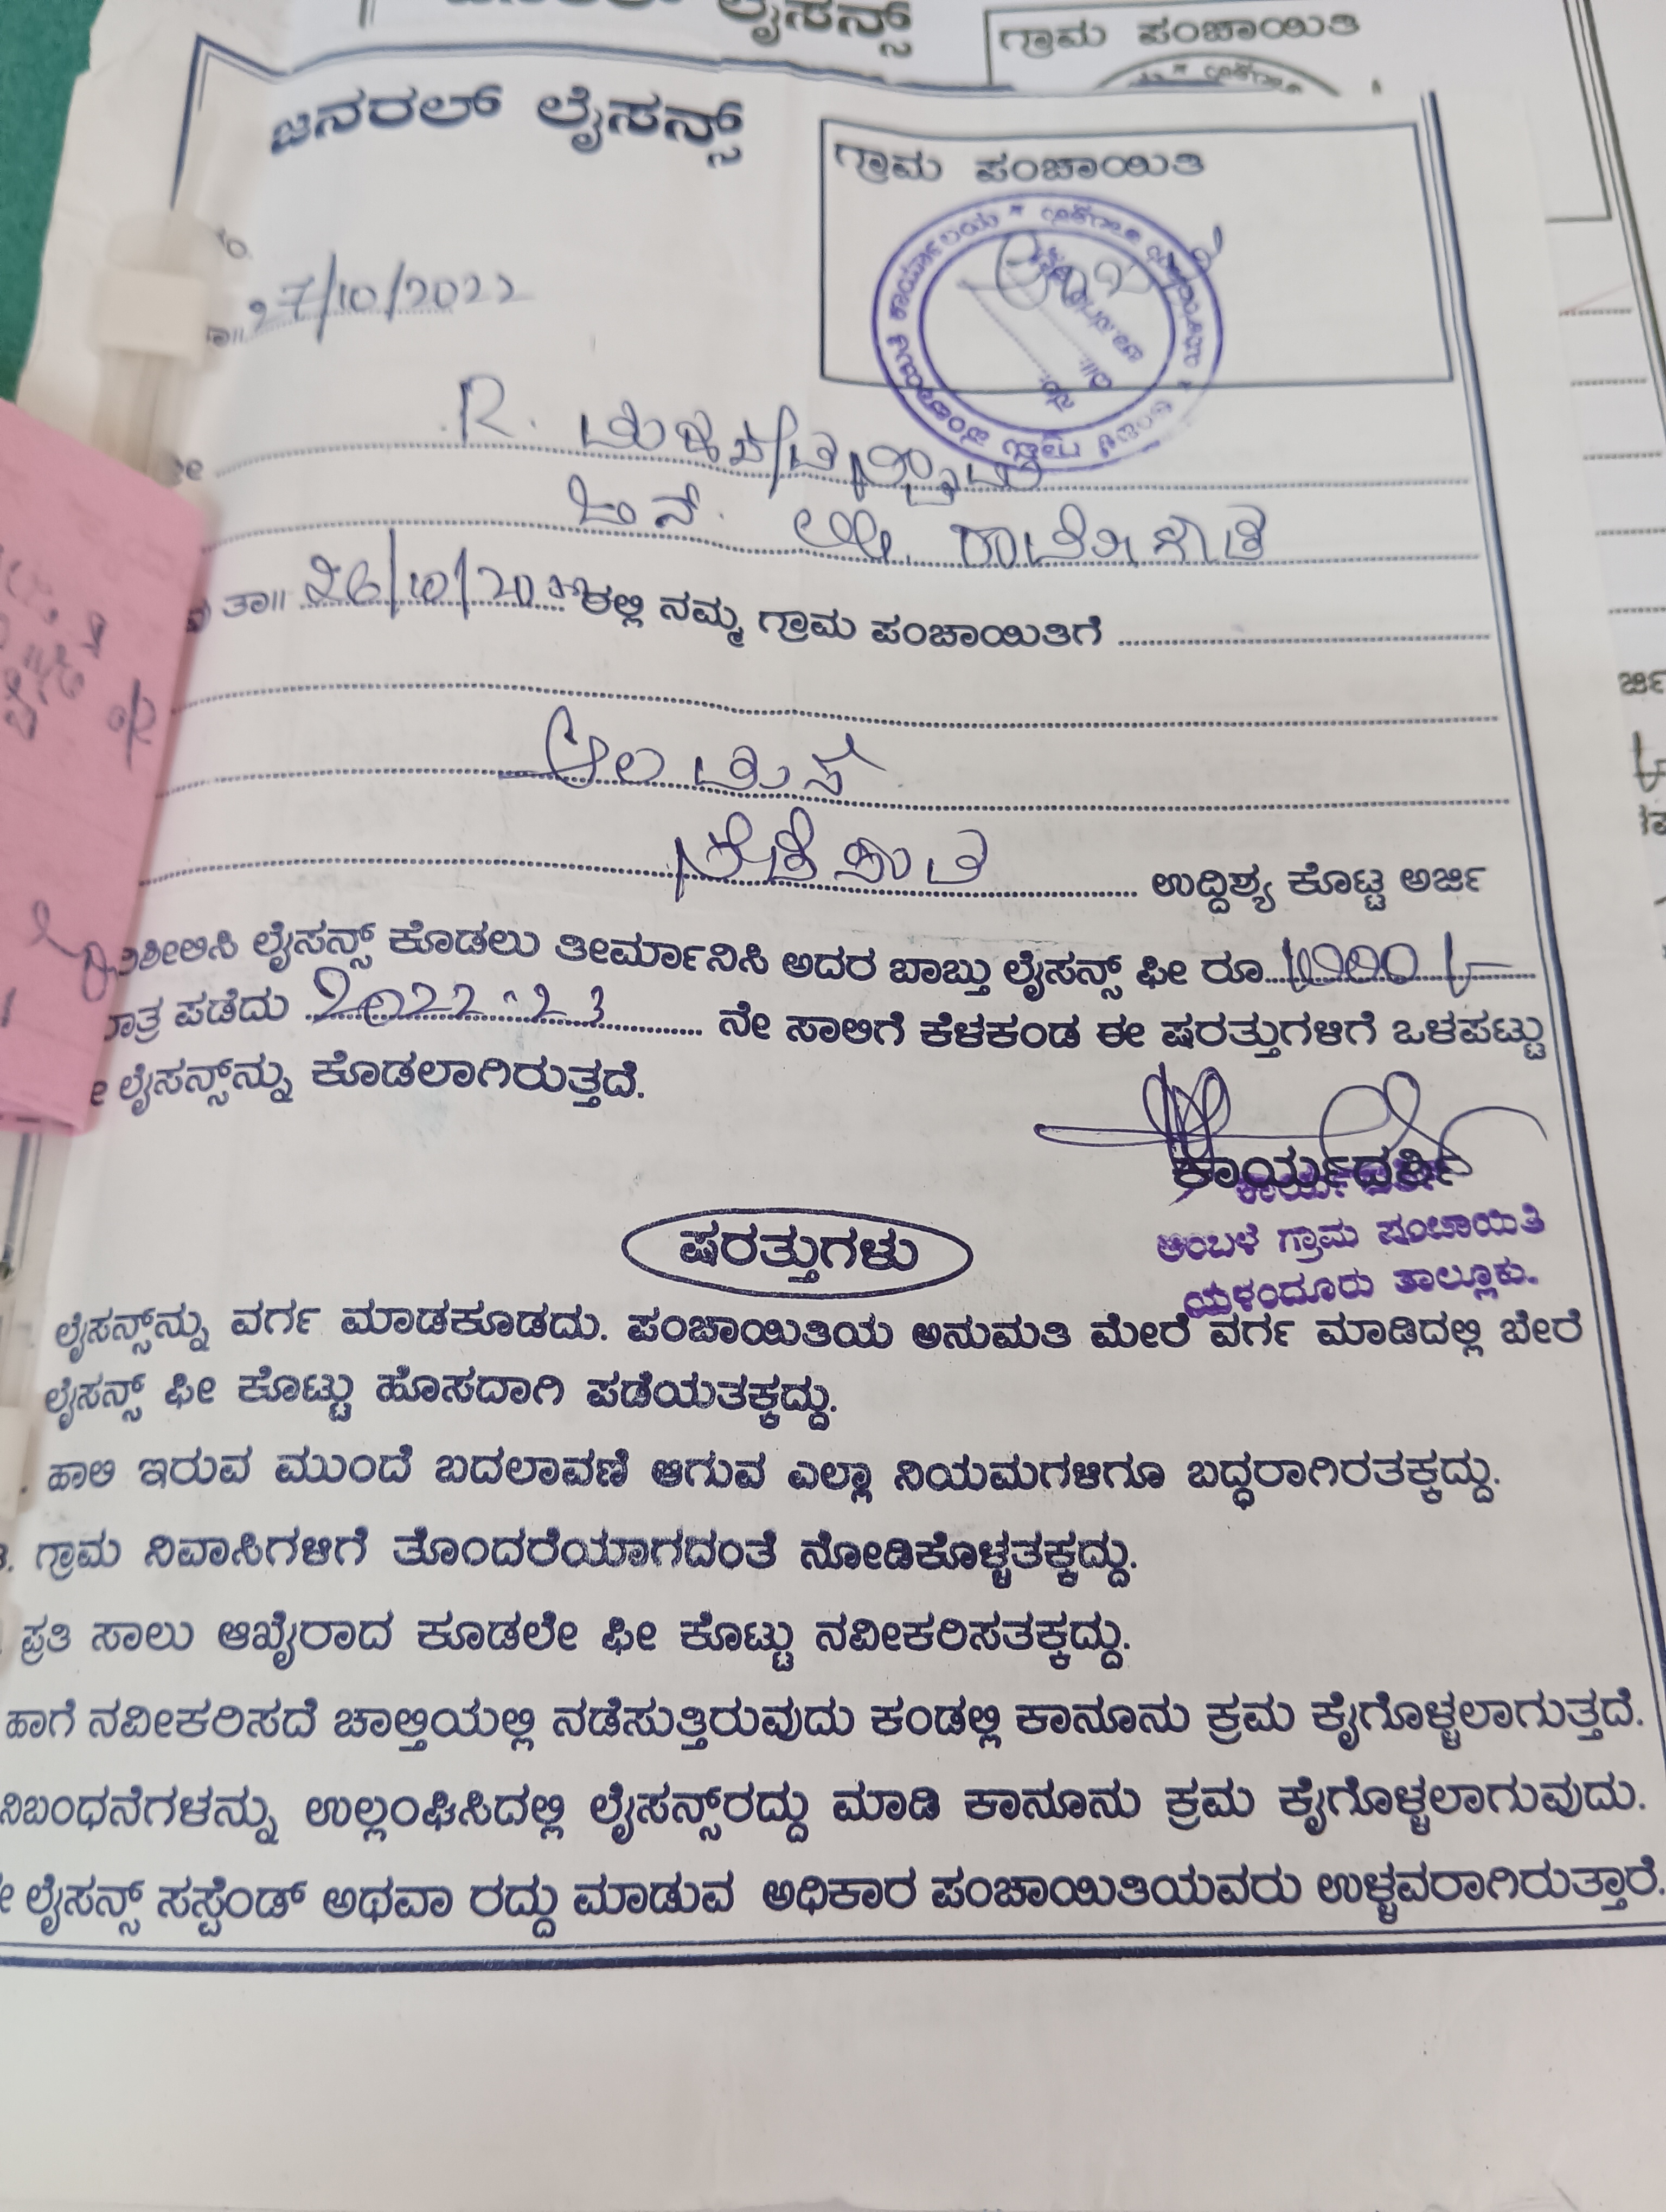 ಲೈಸನ್ಸ್
ಗ್ರಾಮ ಪಂಚಾಯಿತಿ
ಜನರಲ್ ಲೈಸನ್ಸ್
ಗ್ರಾಮ ಪಂಚಾಯಿತಿ
27/10/2022
R.
ತಾ॥ 26/10/20 ರಲ್ಲಿ ನಮ್ಮ ಗ್ರಾಮ ಪಂಚಾಯಿತಿಗೆ
ಉದ್ದಿಶ್ಯ ಕೊಟ್ಟ ಅರ್ಜಿ
ಲೈಸನ್ಸ್ ಕೊಡಲು ತೀರ್ಮಾನಿಸಿ ಅದರ ಬಾಬ್ತು ಲೈಸನ್ಸ್ ಫೀ ರೂ
ಪಡೆದು 2022-23 ನೇ ಸಾಲಿಗೆ ಕೆಳಕಂಡ ಈ ಷರತ್ತುಗಳಿಗೆ ಒಳಪಟ್ಟು
ಲೈಸನ್ಸ್‌ನ್ನು ಕೊಡಲಾಗಿರುತ್ತದೆ.
ಕಾರ್ಯದರ್ಶಿ
ಕಾರ್ಯದರ್ಶಿ
ಅಂಬಳೆ ಗ್ರಾಮ ಪಂಚಾಯಿತಿ
ಯಳಂದೂರು ತಾಲ್ಲೂಕು.
ಷರತ್ತುಗಳು
ಲೈಸನ್ಸ್‌ನ್ನು ವರ್ಗ ಮಾಡಕೂಡದು. ಪಂಚಾಯಿತಿಯ ಅನುಮತಿ ಮೇರೆ ವರ್ಗ ಮಾಡಿದಲ್ಲಿ ಬೇರೆ
ಲೈಸನ್ಸ್ ಫೀ ಕೊಟ್ಟು ಹೊಸದಾಗಿ ಪಡೆಯತಕ್ಕದ್ದು.
ಹಾಲಿ ಇರುವ ಮುಂದೆ ಬದಲಾವಣೆ ಆಗುವ ಎಲ್ಲಾ ನಿಯಮಗಳಿಗೂ ಬದ್ಧರಾಗಿರತಕ್ಕದ್ದು.
ಗ್ರಾಮ ನಿವಾಸಿಗಳಿಗೆ ತೊಂದರೆಯಾಗದಂತೆ ನೋಡಿಕೊಳ್ಳತಕ್ಕದ್ದು.
ಪ್ರತಿ ಸಾಲು ಆಖೈರಾದ ಕೂಡಲೇ ಫೀ ಕೊಟ್ಟು ನವೀಕರಿಸತಕ್ಕದ್ದು.
ಹಾಗೆ ನವೀಕರಿಸದೆ ಚಾಲ್ತಿಯಲ್ಲಿ ನಡೆಸುತ್ತಿರುವುದು ಕಂಡಲ್ಲಿ ಕಾನೂನು ಕ್ರಮ ಕೈಗೊಳ್ಳಲಾಗುತ್ತದೆ.
ನಿಬಂಧನೆಗಳನ್ನು ಉಲ್ಲಂಘಿಸಿದಲ್ಲಿ ಲೈಸನ್ಸ್‌ರದ್ದು ಮಾಡಿ ಕಾನೂನು ಕ್ರಮ ಕೈಗೊಳ್ಳಲಾಗುವುದು.
ಲೈಸನ್ಸ್ ಸಸ್ಪೆಂಡ್ ಅಥವಾ ರದ್ದು ಮಾಡುವ ಅಧಿಕಾರ ಪಂಚಾಯಿತಿಯವರು ಉಳ್ಳವರಾಗಿರುತ್ತಾರೆ.